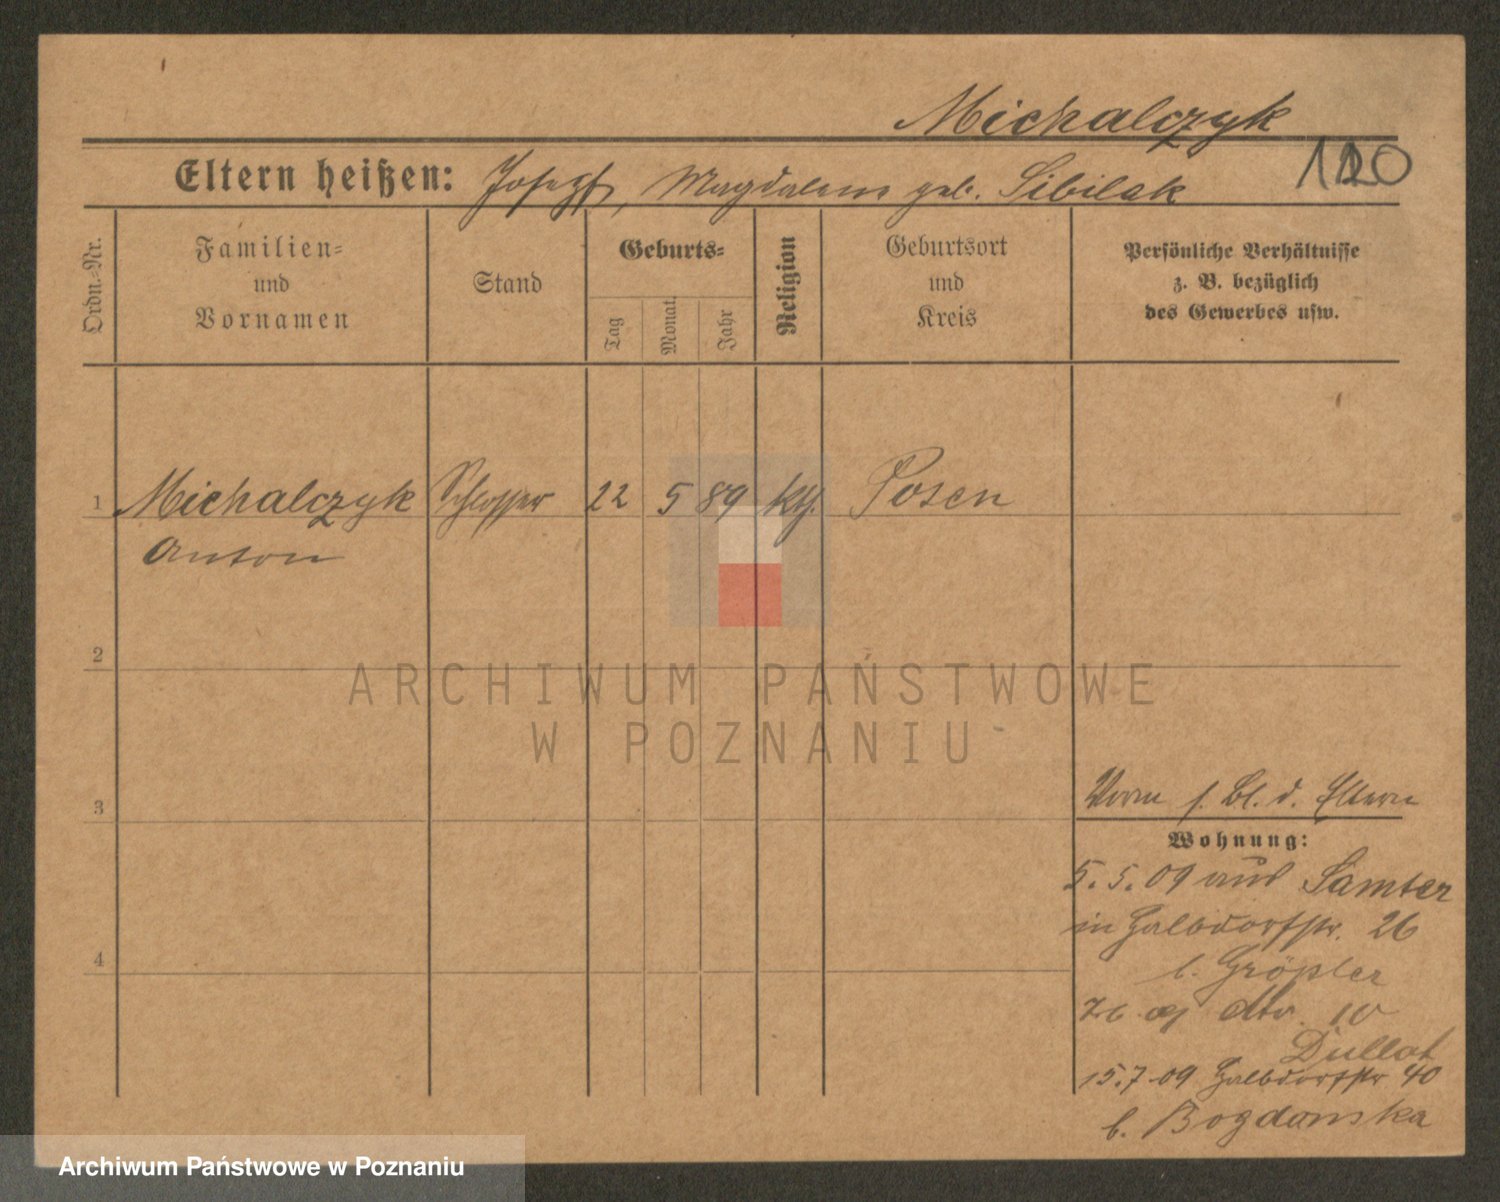 Michalczyk
120
Eltern heißen: Josef, Magdalena geb. Sibilak
Ordn.-Nr.
Familien=
und
Vornamen
Stand
Geburts=
Tag
Monat.
Jahr
Religion
Geburtsort
und
Kreis
Persönliche Verhältnisse
z. B. bezüglich
des Gewerbes usw.
1 Michalczyk Schlosser 22 5 89 kth. Posen
Anton
2
ARCHIWUM PAŃSTWOWE
W POZNANIU
3
Vorm s. Bl. d. Eltern
Wohnung:
5.5.09 aus Samter
in Halbdorfstr. 26
b. Gröpler
dto. 10
Dullat
15.7.09 Halbdorfstr 40
b. Bogdanska
4
Archiwum Państwowe w Poznaniu